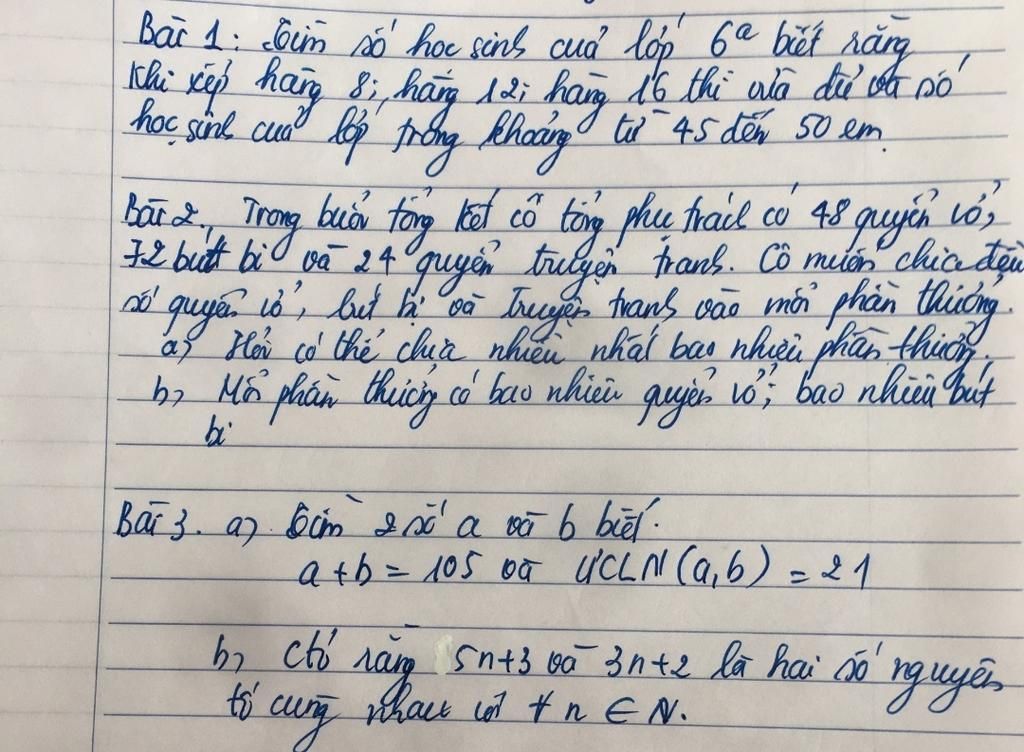 Bài 1: Tìm số học sinh cuả lớp 6ª biết rằng
khi xếp hàng 8; hàng 12; hàng 16 thì vừa đủ và số
học sinh cuả lớp trong khoảng từ 45 đến 50 em.
Bài 2. Trong buổi tổng kết cô tổng phụ trách có 48 quyển vở,
72 bút bi và 24 quyển truyện tranh. Cô muốn chia đều
số quyển vở, bút bi và truyện tranh vào mỗi phần thưởng.
a) Hỏi có thể chia nhiều nhất bao nhiêu phần thưởng.
b) Mỗi phần thưởng có bao nhiêu quyển vở; bao nhiêu bút
bi
Bài 3. a) Tìm 2 số a và b biết.
a + b = 105 và ƯCLN (a, b) = 21
b) ctỏ rằng 5n+3 và 3n+2 là hai số nguyên
tố cùng nhau với ∀ n ∈ N.